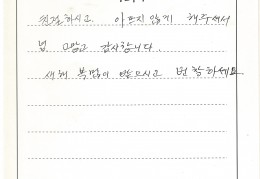 친절하시고 아프지않게 해주셔서
넘 고맙고 감사합니다.
새해 복많이 받으시고 번창하세요